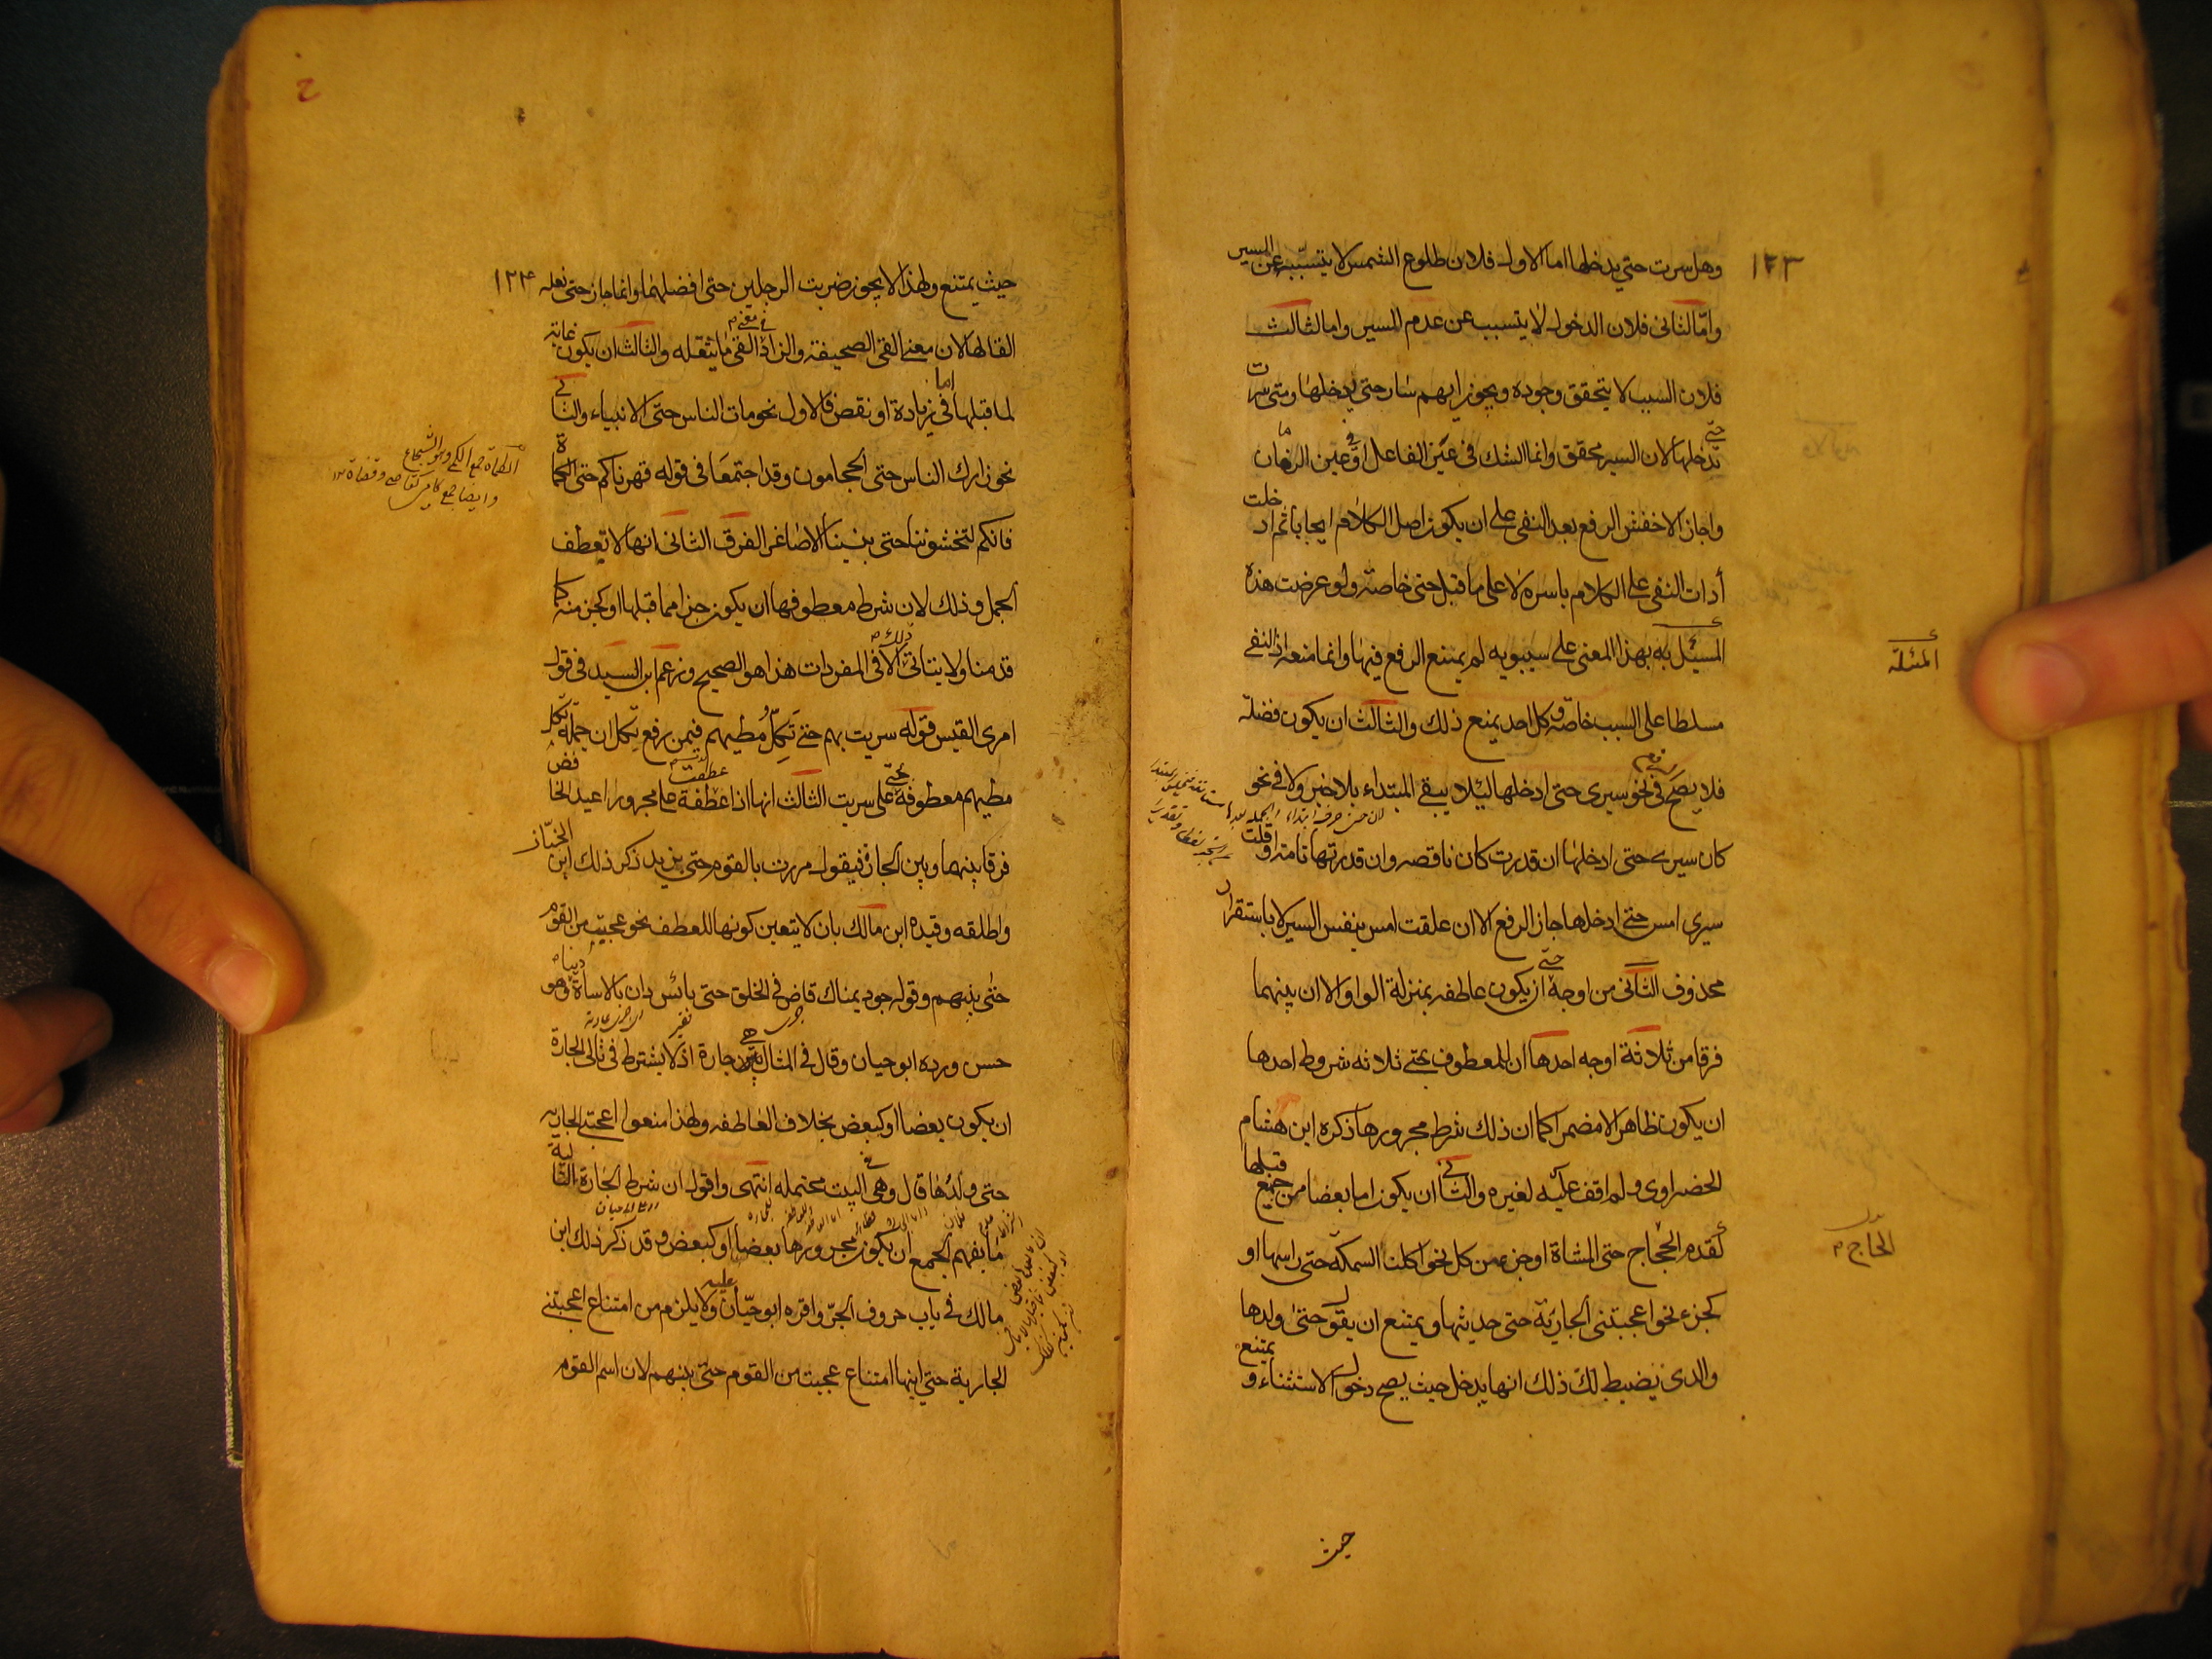 ١٢٣
وهل سرت حتى يدخلها اما الاول فلان طلوع الشمس لا يتسبب عن السير
وامّا الثانى فلان الدخول لا يتسبب عن عدم السير واما الثالث
فلان السبب لا يتحقق وجوده ويجوز ايهم سار حتى يدخلها ومتى سرت
حتّى تدخلها لان السير محقق وانما الشك فى عين الفاعل او فى عين الزمان
واجاز الاخفش الرفع بعد النفى على ان يكون اصل الكلام ايجابا ثم ادخلت
أدات النفى على الكلام باسره لا على ما قبل حتى خاصة ولو عرضت هذه
المسئلة به بهذا المعنى على سيبويه لم يمتنع الرفع فيها وانما منعه اذ النفى
المئلة
مسلطا على السبب خاصة وكل احد يمنع ذلك والثالث ان يكون فضلة
فلا يصح فى نحو سيرى حتى ادخلها لئلا يبقى المبتداء بلا خبر ولا فى نحو
كان سيرى حتى ادخلها ان قدرت كان ناقصه وان قدرتها تامة او قلت
سيرى امس حتى ادخلها جاز الرفع الا ان علقت امس بنفس السير لا باستقرار
محذوف الثانى من اوجه حتّى ان يكون عاطفه بمنزلة الواو الا ان بينهما
فرقا من ثلاثة اوجه احدها ان للمعطوف بحتى ثلاثه شروط احدها
ان يكون ظاهرا لا مضمرا كما ان ذلك شرط مجرورها ذكره ابن هشام
الخضراوى ولم اقف عليه لغيره والثانى ان يكون اما بعضا من جمع قبلها
كقدم الحجاج حتى المشاة او جزء من كل نحو اكلت السمكة حتى راسها او
الحاج
كجزء نحو اعجبتنى الجارية حتى حديثها ويمتنع ان يقول حتى ولدها
والذى يضبط لك ذلك انها يدخل حيث يصح دخول الاستثناء ويمتنع
حيث
١٢٤
حيث يمتنع ولهذا لا يجوز ضربت الرجلين حتى افضلهما وانما جاز حتى نعله
القاها لان معنى القى الصحيفة والزاد فى معنى القى ما يثقله والثالث ان يكون غاية
لما قبلها اما فى زيادة او نقص فالاول نحو مات الناس حتّى الانبياء والثانى
نحو زارك الناس حتى الحجامون وقد اجتمعا فى قوله قهرناكم حتى الكماة
الكماة جمع الكمي وهو الشجاع
فانكم لتخشوننا حتى بنينا الاصاغر الفرق الثانى انها لا تعطف
الجمل وذلك لان شرط معطوفها ان يكون جزا مما قبلها او كجزء منه كما
قدمنا ولا يتاتى ذلك الا فى المفردات هذا هو الصحيح وزعم ابن السيد فى قول
امرى القيس قوله سريت بهم حتى تَكِلُّ مُطيهم فيمن رفع تكل ان جملة تكل
مطيهم معطوفة بحتى على سريت الثالث انها اذا عطفت على مجرور اعيد الخافض
فرقا بينهما وبين الجارة فيقول مررت بالقوم حتى بزيد ذكر ذلك ابن الخبّاز
واطلقه وقيده ابن مالك بان لا يتعين كونها للعطف نحو عجبت من القوم
حتى بنيهم وقوله جود يمناك فاض فى الخلق حتى بائس دان بالاساة دينا وهو
حسن ورده ابو حيان وقال فى المثال هى جارة اذ لا يشترط فى تالى الجارة
ان يكون بعضا او كبعض بخلاف العاطفه ولهذا منعوا اعجبتنى الجارية
حتى ولدها قال وهى فى البيت محتمله انتهى واقول ان شرط الجارة التالية
ما يفهم الجمع ان يكون مجرورها بعضا او كبعض وقد ذكر ذلك ابن
مالك فى باب حروف الجرّ واقره ابو حيّان عليه ولا يلزم من امتناع اعجبتنى
الجارية حتى ابنها امتناع عجبت من القوم حتى بنيهم لان اسم القوم